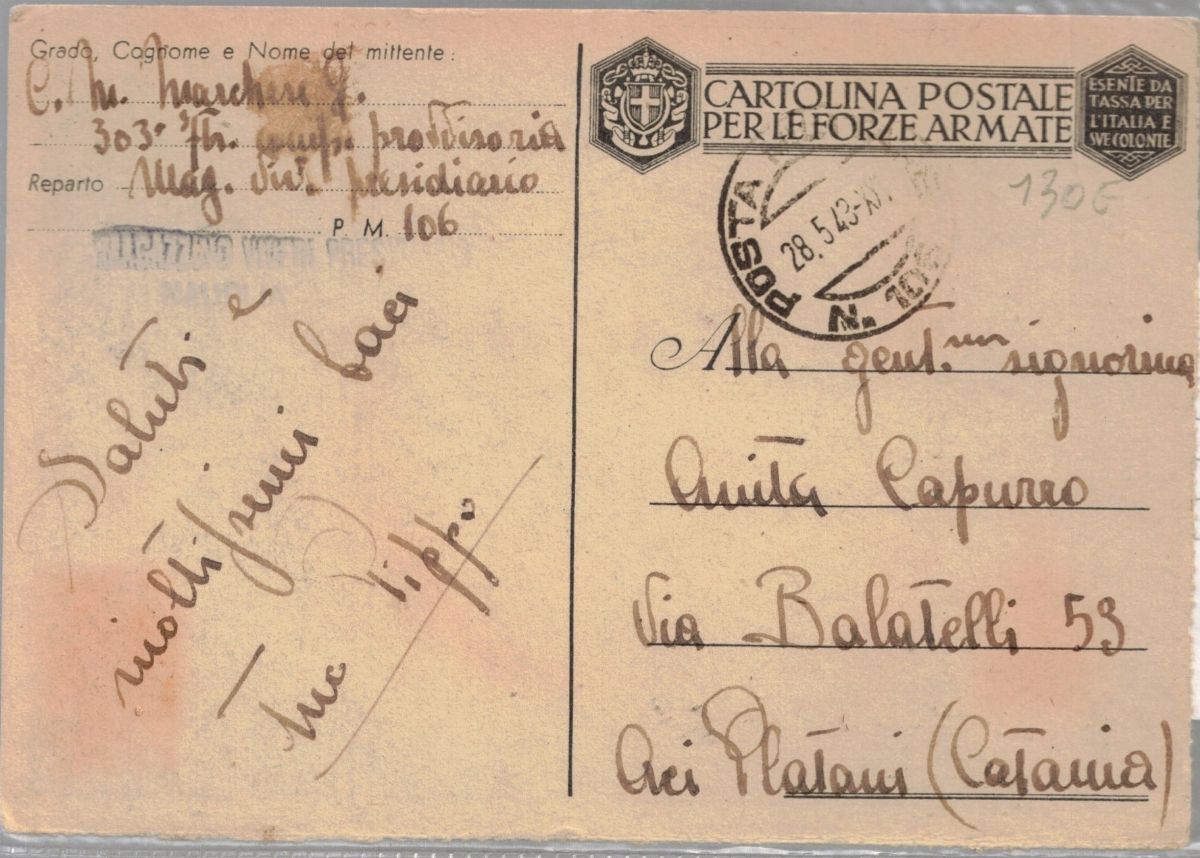 Grado, Cognome e Nome del mittente:
C. M. Marchese G.
303° provvisoria
Reparto Mag. Viv. presidiario
P. M. 106
MAGAZZINO VIVERI
Saluti e
moltissimi baci
Tuo Pippo
CARTOLINA POSTALE
PER LE FORZE ARMATE
ESENTE DA
TASSA PER
L'ITALIA E
SVE COLONIE
130 E
POSTA
28.5.43
N. 106
Alla gent.ma signorina
Anita Capurro
Via Balatelli 53
Aci Platani (Catania)